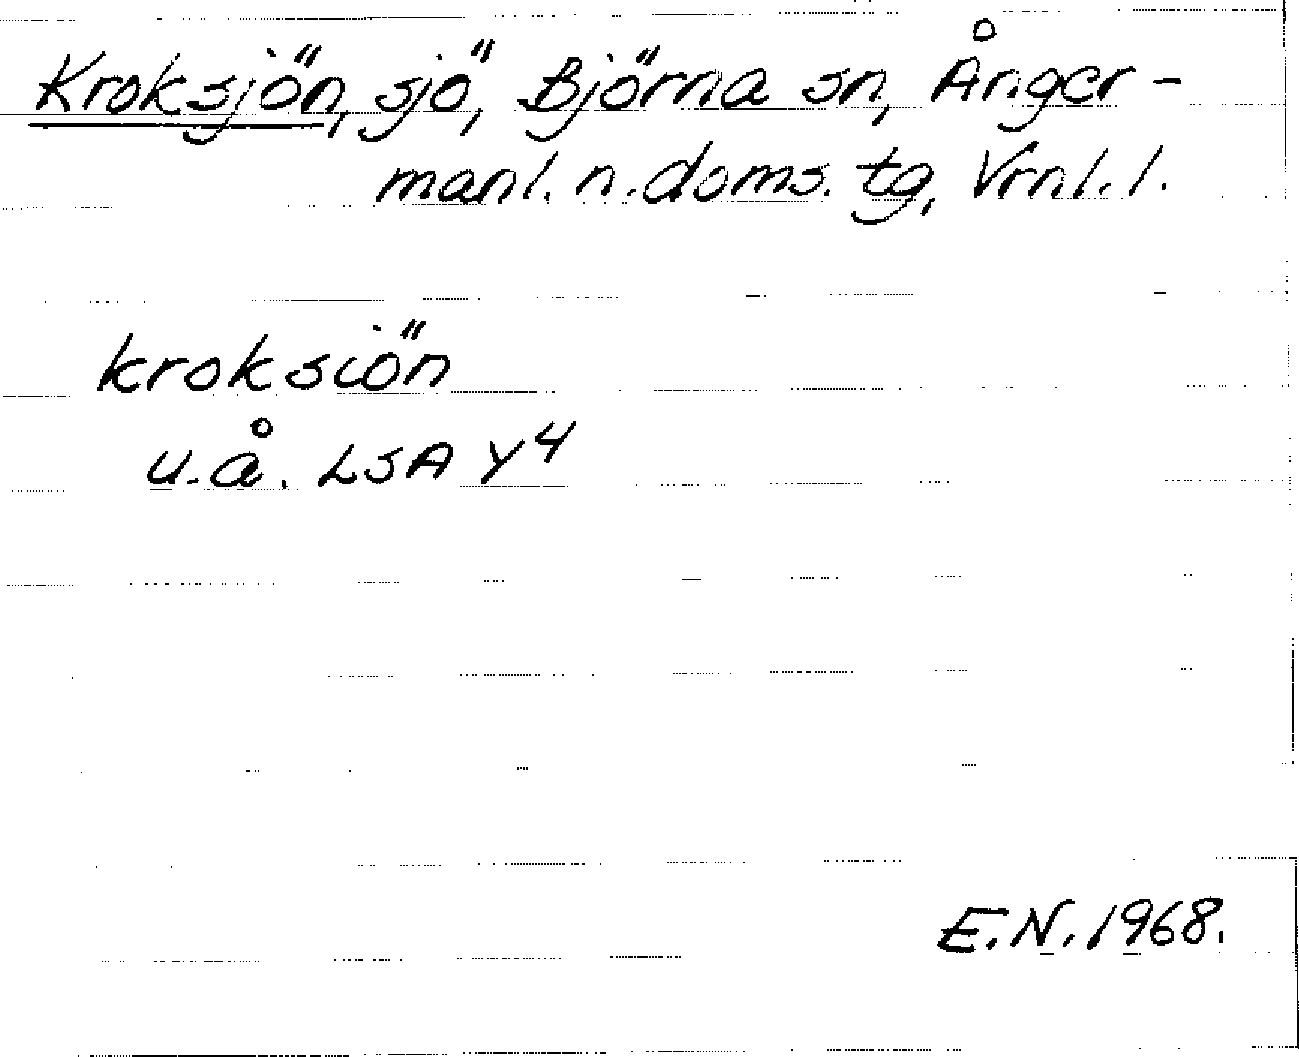 Kroksjön, sjö, Björna sn, Ånger-
manl. n. doms. tg, Vrnl. l.
kroksiön
u.å. LSA Y4
E.N. 1968.